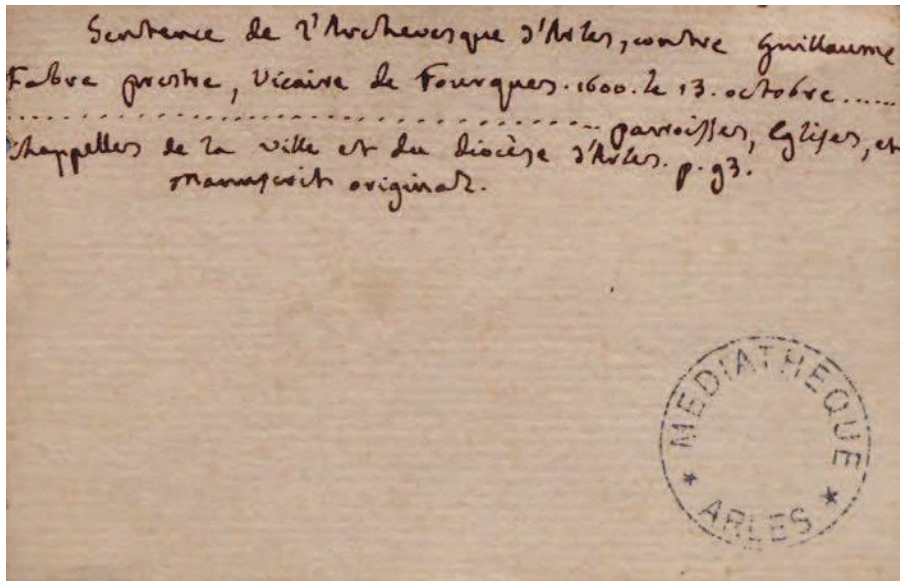 Sentence de l'Archevesque d'Arles, contre Guillaume
Fabre prestre, Vicaire de Fourques. 1600. le 13. octobre......
.................................. parroisses, Eglises, et
chappelles de la ville et du diocèse d'Arles. p. 93.
manuscrit original.
MEDIATHEQUE
* ARLES *